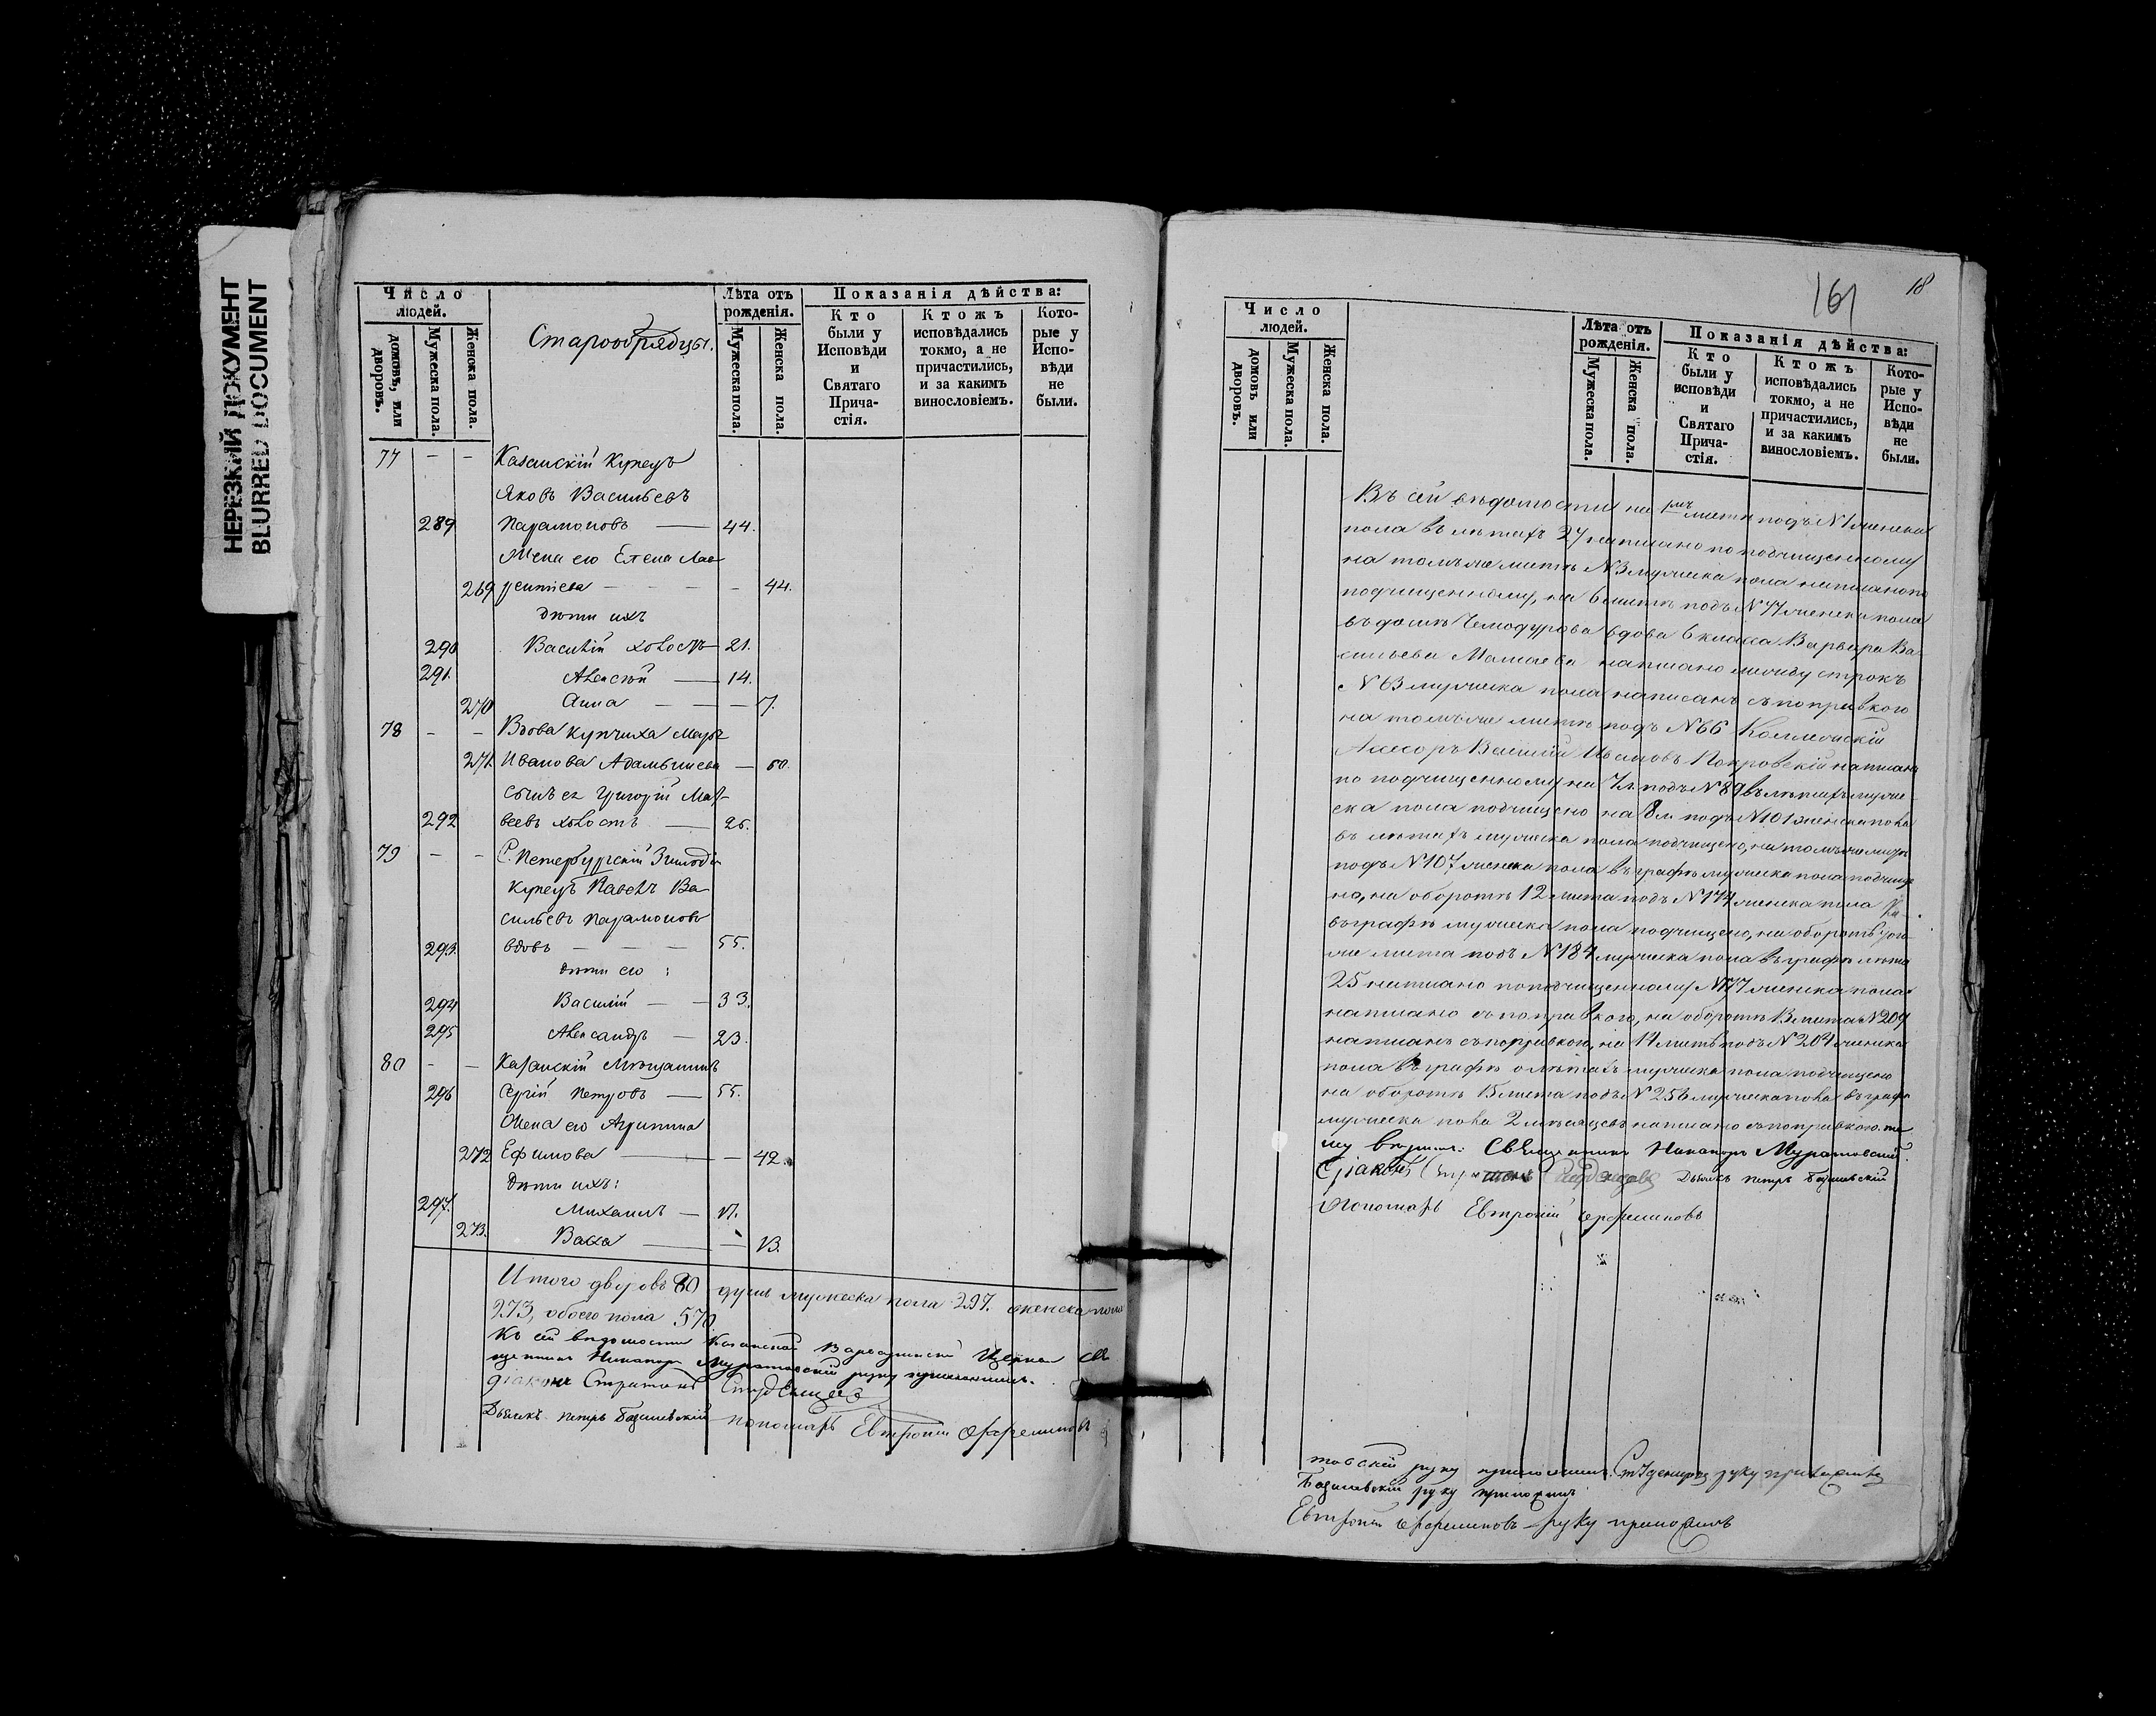 НЕРЕЗКИЙ ДОКУМЕНТ
BLURRED DOCUMENT
Число людей.
домовъ, или дворовъ.
Мужеска пола.
Женска пола.
Старообрядцы.
Лѣта отъ рожденія.
Мужеска пола.
Женска пола.
Показанія дѣйства:
Кто были у Исповѣди и Святаго Прича-стія.
Ктожъ исповѣдались токмо, а не причастились, и за какимъ винословіемъ.
Кото-рые у Испо-вѣди не были.
77 - - Казанскій Купецъ
Яковъ Васильевъ
289 Парамоновъ — 44.
Жена его Елена Лав
269 рентіева - - - - 44.
дѣти ихъ
290 Василій холостъ 21.
291. Алексѣй — 14.
270 Анна - - - 7.
78 - - Вдова купчиха Марѳ
271. Иванова Адамычева — 60.
сынъ ея Григорій Мат-
292 веевъ холостъ — 26.
79 - - С. Петербургскій 3 гильдіи
купецъ Павелъ Ва
сильевъ Парамоновъ
293. вдовъ - - - 55.
дѣти его:
294 Василій - - 33.
295 Александръ — 23.
80 - - Казанскій Мѣщанинъ
296 Сергій Петровъ — 55.
Жена его Агрипина
272 Ефимова — - 42.
дѣти ихъ:
297. Михаилъ — 17.
273. Васса — — 13.
Итого дворовъ 80 душъ мужеска пола 297. женска пола
273, обоего пола 570.
Къ сей вѣдомости Казанской Варваринской Церкви Свя
щенникъ Никаноръ Муратовскій руку приложилъ.
діаконъ Стратонъ Студенцовъ
Дьячекъ Петръ Базилевскій пономарь Евтропій Ефремовъ
161
18
Число людей.
домовъ или дворовъ.
Мужеска пола.
Женска пола.
Лѣта отъ рожденія.
Мужеска пола.
Женска пола.
Показанія дѣйства:
Кто были у исповѣди и Святаго Прича-стія.
Ктожъ исповѣдались токмо, а не причастились, и за какимъ винословіемъ.
Кото-рые у Испо-вѣди не были.
Въ сей вѣдомости на 1мъ листѣ подъ N 1 женска
пола въ лѣтахъ 27 написано по подчищенному
на томъ же листѣ N 3 мужеска пола написано по
подчищенному, на 6 листѣ подъ N 77 женска пола
въ домѣ Чемодурова вдова 6 класса Варвара Ва
сильева написано между строкъ
N 63 мужеска пола написанъ съ поправкою
на томъ же листѣ подъ N 66 Коллежскій
Ассесоръ Василій Ивановъ Покровскій написано
по подчищенному на 7 л. подъ N 89 въ лѣтахъ муже
ска пола подчищено на 8 л. подъ N 101 женска пола
въ лѣтахъ мужеска пола подчищено, на томъ же листѣ
подъ N 107 женска пола въ графѣ мужеска пола подчище
но, на оборотѣ 12 листа подъ N 174 женска пола
въ графѣ мужеска пола подчищено, на оборотѣ того
же листа подъ N 184 мужеска пола въ графѣ лѣта
25 написано по подчищенному N 177 женска пола
написано съ поправкою, на оборотѣ 13 листа N 209
написанъ съ поправкою, на 14 листѣ подъ N 204 женска
пола въ графѣ о лѣтахъ мужеска пола подчищено
на оборотѣ 15 листа подъ N 256 мужеска пола въ графѣ
мужеска пола 2 мѣсяцевъ написано съ поправкою.
Священникъ Никаноръ Муратовскій
Діаконъ Студенцовъ Дьячекъ Петръ Базилевскій
Пономарь Евтропій Ефремовъ
товскій руку приложилъ. Студенцовъ руку приложилъ
Базилевскій руку приложилъ
Евтропій Ефремовъ руку приложилъ